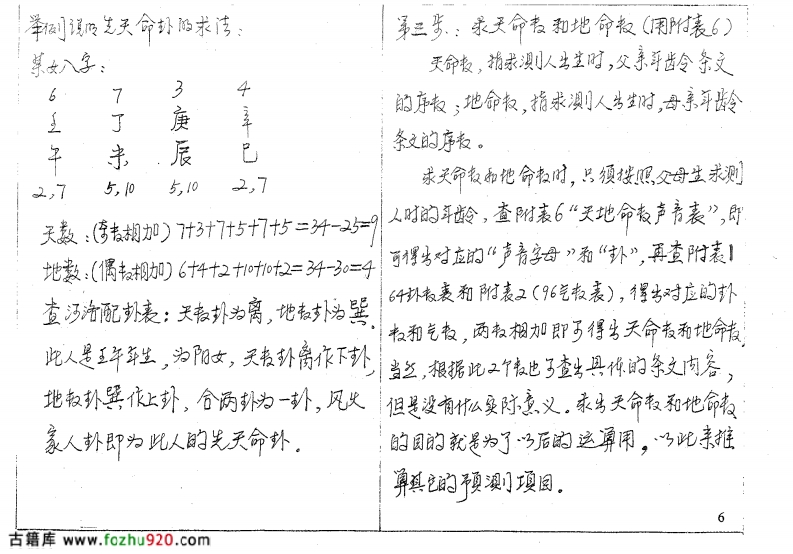 举例说明先天命卦的求法：
某女八字：
6 7 3 4
壬 丁 庚 辛
午 未 辰 巳
2,7 5,10 5,10 2,7
天数：(奇数相加) 7+3+7+5+7+5=34-25=9
地数：(偶数相加) 6+4+2+10+10+2=34-30=4
查河洛配卦表：天数卦为离，地数卦为巽，
此人是壬午年生，为阳女，天数卦离作下卦，
地数卦巽作上卦，合两卦为一卦，风火
家人卦即为此人的先天命卦．
第三步：求天命数和地命数(用附表6)
天命数，指求测人出生时，父亲年龄条文
的序数；地命数，指求测人出生时，母亲年龄
条文的序数。
求天命数和地命数时，只须按照父母生求测
人时的年龄，查附表6“天地命数声音表”，即
可得出对应的“声音字母”和“卦”，再查附表1
64卦数表和附表2(96气数表)，得出对应的卦
数和气数，两数相加即可得出天命数和地命数．
当然，根据此2个数也可查出具体的条文内容，
但是没有什么实际意义。求出天命数和地命数
的目的就是为了以后的运算用。以此来推
算其它的预测项目。
6
古籍库 www.fozhu920.com